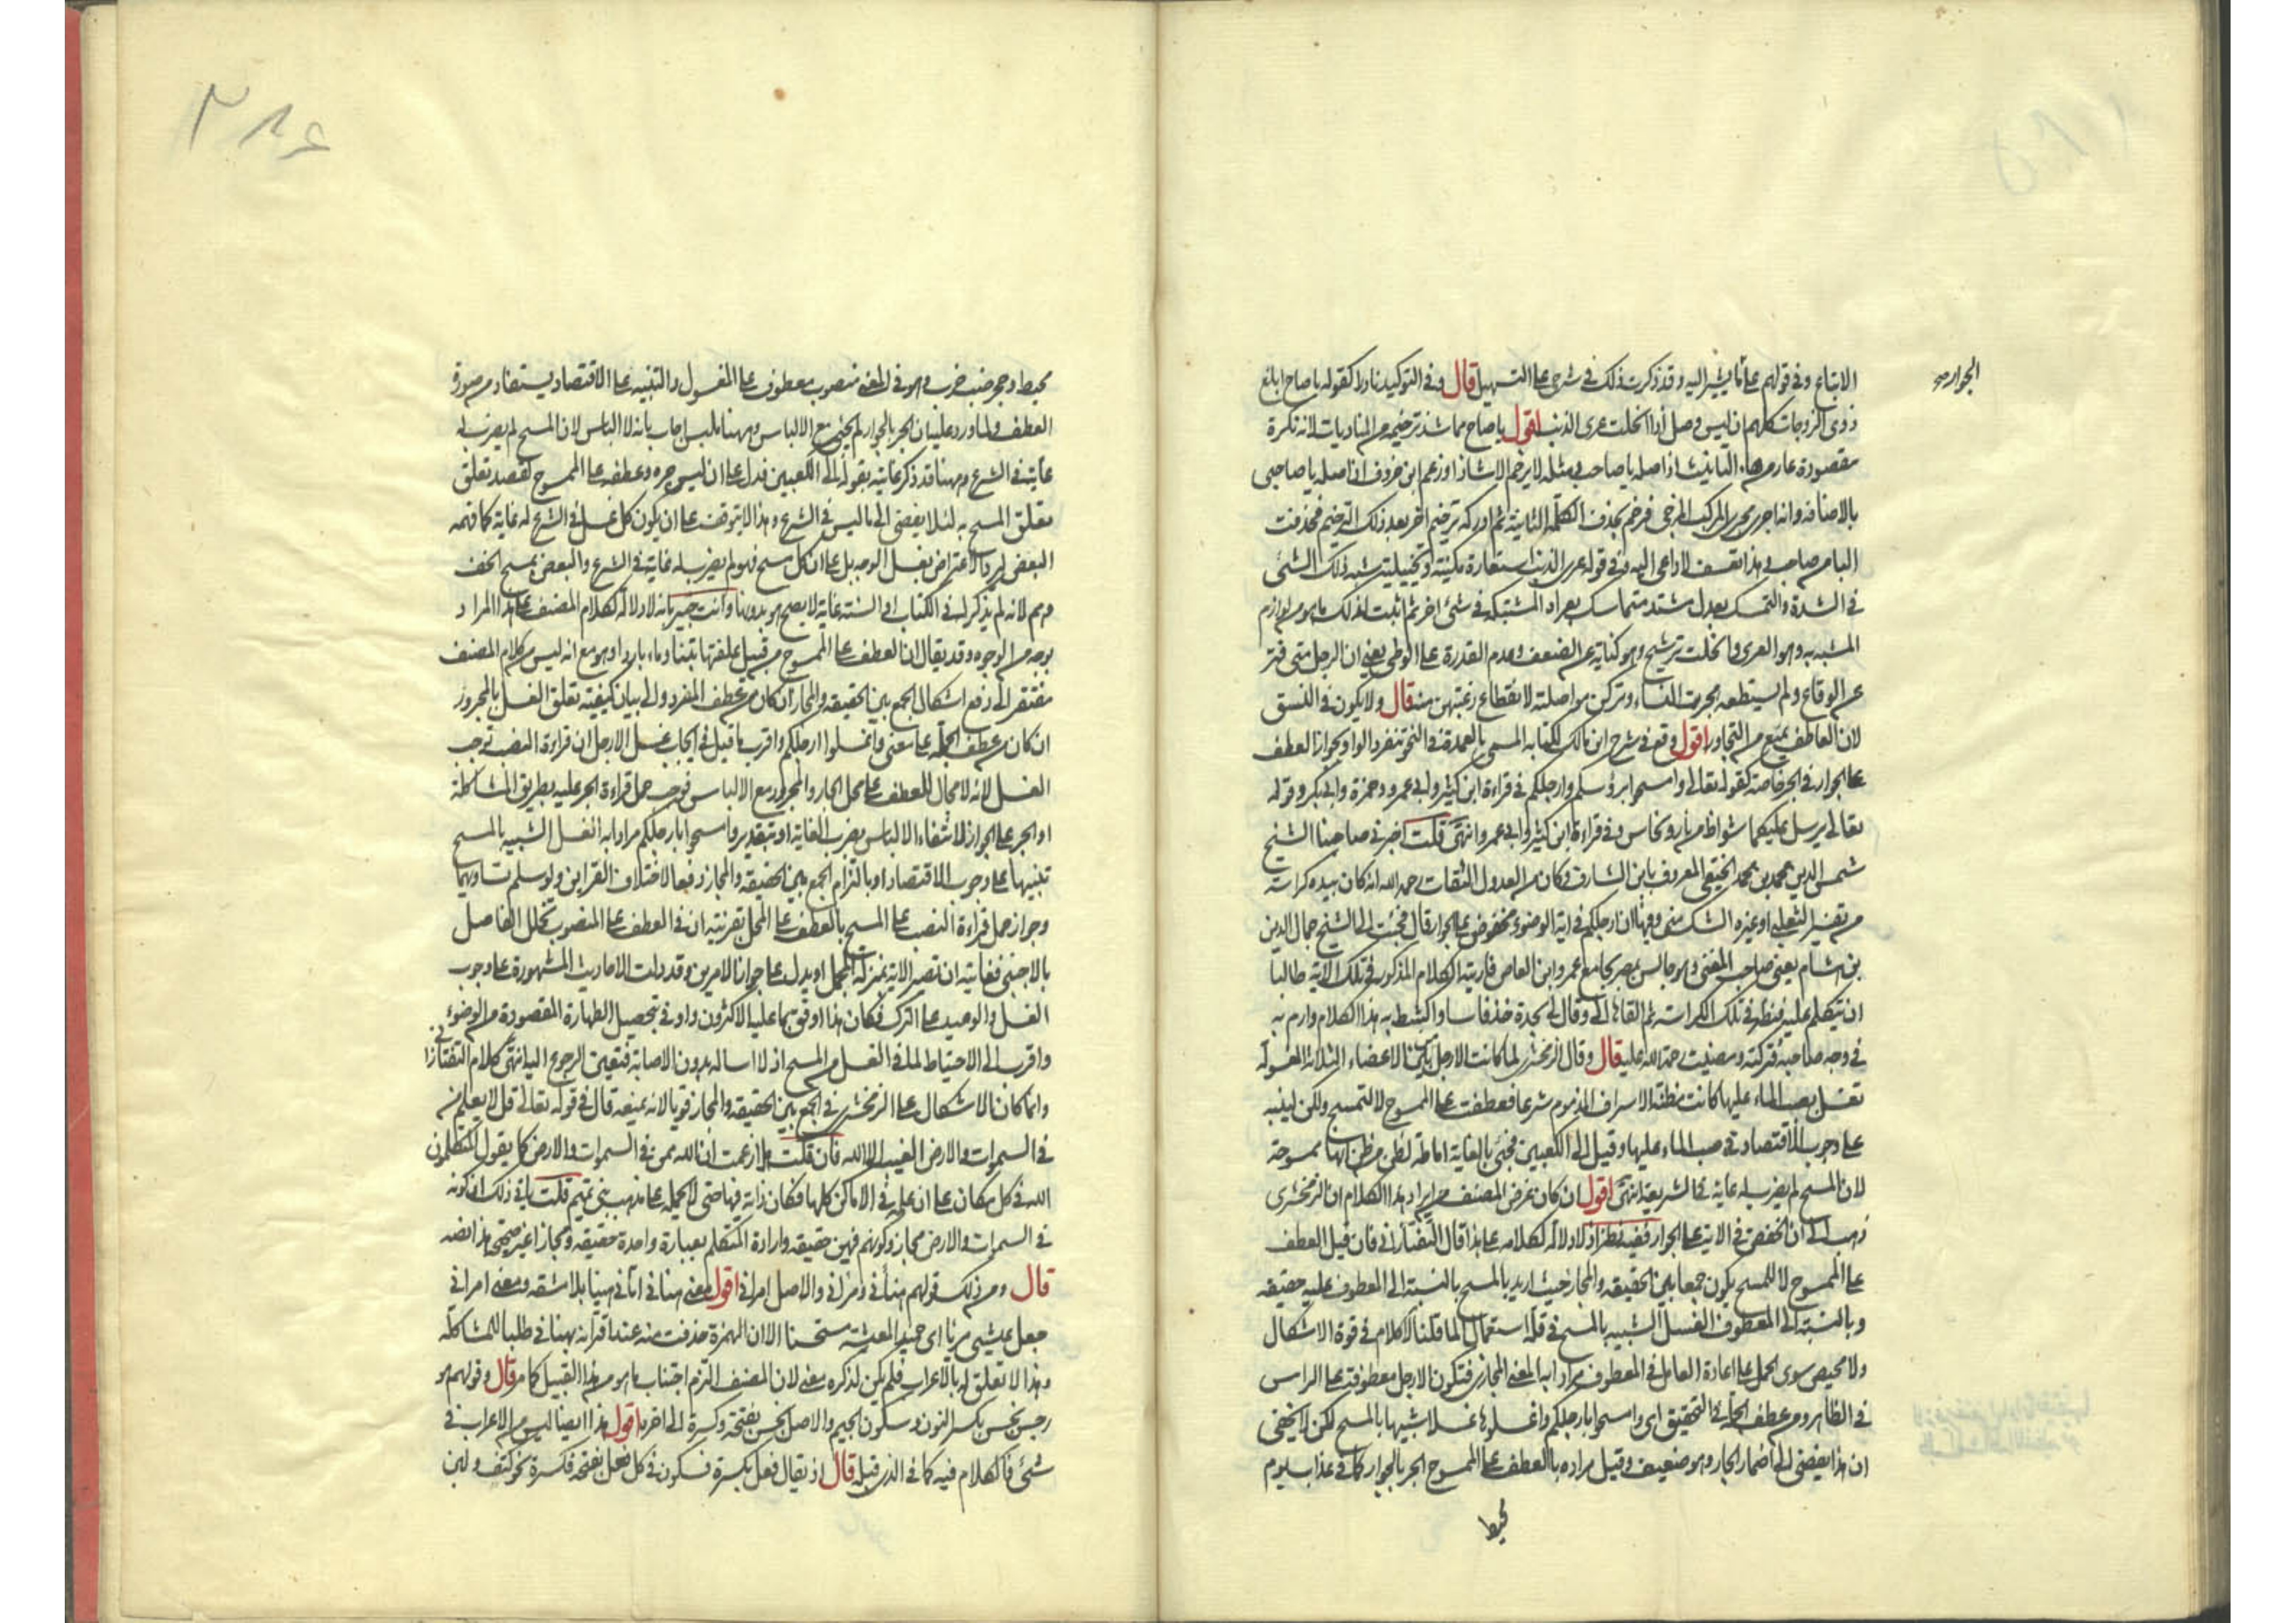 الجوار صح
الاتباع وفي قولهم على ما يشير اليه وقد ذكرت ذلك في شرحي على التسهيل قال وفي التوكيد نادرا كقوله يا صاح ابلغ
ذوي الزوجات كلهم ان ليس وصل اذا انحلت عرى الذنب اقول يا صاح مما شذ ترخيمه من المناديات لانه نكرة
مقصودة عار من هاء التانيث اذ اصله يا صاحب ومثله لا يرخم الا شاذا وزعم ابن خروف ان اصله يا صاحبي
بالاضافة وانه اجري مجرى المركب المزجي فرخم بحذف الكلمة الثانية ثم ادركه ترخيم اخر بعد ذلك الترخيم فحذفت
الباء من صاحب وهذا تعسف لا داعي اليه وفي قوله عرى الذنب استعارة مكنية وتخييلية شبه ذلك الشئ
في الشدة والتمسك بعدل مشتد متماسك بعراه المشتبكة في شئ اخر ثم اثبت له ذلك ما هو من لوازم
المشبه به وهو العرى وانحلت ترشيح وهو كناية عن الضعف وعدم القدرة على الوطئ يعني ان الرجل متى فتر
عن الوقاع ولم يستطعه هجرت النساء وتركن مواصلته لانقطاع رغبتهن منه قال ولا يكون في النسق
لان العاطف يمنع من التجاور اقول وقع في شرح ابن مالك لكتابه المسمى بالعمدة في النحو تنفرد الواو بجواز العطف
على الجوار في الجر خاصة كقوله تعالى وامسحوا برؤسكم وارجلكم في قراءة ابن كثير وابي عمرو وحمزة وابي بكر وقوله
تعالى يرسل عليكما شواظ من نار ونحاس وفي قراءة ابن كثير وابي عمرو انتهى قلت اخبرني صاحبنا الشيخ
شمس الدين محمد بن محمد الحنفي المعروف بابن الشارق وكان من العدول الثقات رحمه الله انه كان بيده كراسة
من تفسير الثعلبي او غيره الشك مني وفيها ان ارجلكم في اية الوضوء مخفوض على الجوار قال فجئت الى الشيخ جمال الدين
بن هشام يعني صاحب المغني وهو جالس بمصر بجامع عمرو ابن العاص فاريته الكلام المذكور في تلك الاية طالبا
ان يتكلم عليه فنظر في تلك الكراسة ثم القاها الي وقال لي بحدة خذ فاسا واكشط به هذا الكلام وارم به
في وجه صاحبه فتركته ومضيت رحمة الله عليه قال وقال الزمخشري لما كانت الارجل بين الاعضاء الثلاثة المغسولة
تغسل بصب الماء عليها كانت مظنة الاسراف المذموم شرعا فعطفت على الممسوح لا لتمسح ولكن لينبه
على وجوب الاقتصاد في صب الماء عليها وقيل الى الكعبين فجئ بالغاية اماطة لظن من ظن انها ممسوحة
لان المسح لم يضرب له غاية في الشريعة انتهى اقول ان كان غرض المصنف من ايراد هذا الكلام ان الزمخشري
ذهب الى ان الخفض في الاية على الجوار ففيه نظر اذ لا دلالة لكلامه على هذا قال التفتازاني فان قيل العطف
على الممسوح لا للمسح يكون جمعا بين الحقيقة والمجاز حيث اريد بالمسح بالنسبة الى المعطوف عليه حقيقة
وبالنسبة الى المعطوف الغسل الشبيه بالمسح في قلة استعمال الماء قلنا الكلام في قوة الاشكال
ولا محيص سوى الحمل على اعادة العامل في المعطوف مرادا به المعنى المجازي فتكون الارجل معطوفة على الراس
في الظاهر ومن عطف الجمل في التحقيق اي وامسحوا بارجلكم واغسلوها غسلا شبيها بالمسح لكن لا يخفى
ان هذا يفضي الى اضمار الجار وهو ضعيف وقيل مراده بالعطف على الممسوح الجر بالجوار كما في عذاب يوم
محيط
٣٨٤
محيط وجحر ضب خرب وهو في المعنى منصوب معطوف على المغسول والتنبيه على الاقتصاد يستفاد من صورة
العطف ولما ورد عليه ان الجر بالجوار لم يجئ مع الالباس وههنا يلبس اجاب بانه لا الباس لان المسح لم يضرب له
غاية في الشرع وههنا قد ذكر غايته بقوله الى الكعبين فدل على ان ليس جره وعطفه على الممسوح لقصد تعلق
تعلق المسح به لئلا يفضي الى ما ليس في الشرع وهذا لا يتوقف على ان يكون كل غسل في الشرع له غاية كما فهمه
البعض ليرد الاعتراض بغسل الوجه بل على ان كل مسح فهو لم يضرب له غاية في الشرع والبعض بمسح الخف
وهم لانه لم يذكر له في الكتاب او السنة غاية لا يصح هو بدونها وانت خبير بانه لا دلالة لكلام المصنف على هذا المراد
بوجه من الوجوه وقد يقال ان العطف على الممسوح من قبيل علفتها تبنا وماء باردا وهو مع انه ليس من كلام المصنف
مفتقر الى دفع اشكال الجمع بين الحقيقة والمجاز ان كان من عطف المفرد والى بيان كيفية تعلق الغسل بالمجرور
ان كان من عطف الجملة على معنى واغسلوا ارجلكم واقرب ما قيل في ايجاب غسل الارجل ان قراءة النصب توجب
الغسل لانه لا مجال للعطف على محل الجار والمجرور مع الالباس فوجب حمل قراءة الجر عليه بطريق المشاكلة
او الجر على الجوار لانتفاء الالباس بضرب الغاية او بتقدير وامسحوا بارجلكم مرادا به الغسل الشبيه بالمسح
تنبيها على وجوب الاقتصاد او بالتزام الجمع بين الحقيقة والمجاز دفعا لاختلاف القراءتين ولو سلم تساويهما
وجواز حمل قراءة النصب على المسح بالعطف على المحل بقرينة ان في العطف على المنصوب تخلل الفاصل
بالاجنبي فغايته ان تصير الاية بمنزلة المجمل او يدل على جواز الامرين وقد دلت الاحاديث المشهورة على وجوب
الغسل والوعيد على الترك فكان هذا اوفق بما عليه الاكثرون واوفى بتحصيل الطهارة المقصودة من الوضوء
واقرب الى الاحتياط لما في الغسل من المسح اذ لا اسالة بدون الاصابة فتعين الرجوع اليه انتهى كلام التفتازاني
وانما كان الاشكال على الزمخشري في الجمع بين الحقيقة والمجاز قويا لانه يمنعه قال في قوله تعالى قل لا يعلم من
في السموات والارض الغيب الا الله فان قلت هلا زعمت ان الله ممن في السموات والارض كما يقول المتكلمون
الله في كل مكان على ان علمه في الاماكن كلها فكان ذاته فيها حتى لا يحمله على مذهب بني تميم قلت يابى ذلك ان كونه
في السموات والارض مجاز وكونهم فيهن حقيقة وارادة المتكلم بعبارة واحدة حقيقة ومجازا غير صحيح هذا نصه
قال ومن ذلك قولهم هنأني ومرأني والاصل امرأني اقول معنى هنأني اتاني هنيئا بلا مشقة ومعنى امرأني
جعل عيشي مريئا اي حميد المعيشة مستحسنا الا ان الهمزة حذفت منه عند اقترانه بهنأني طلبا للمشاكلة
وهذا لا تعلق له بالاعراب فلم يكن لذكره معنى لان المصنف التزم اجتناب ما هو من هذا القبيل كما مر قال وقولهم هو
رجس نجس بكسر النون وسكون الجيم والاصل نجس بفتحة وكسرة الى اخره اقول هذا ايضا ليس من الاعراب في
شئ فالكلام فيه كما في الذي قبله قال اذ يقال فعل بكسرة فسكون في كل فعل بفتحة فكسرة نحو كتف ولبن